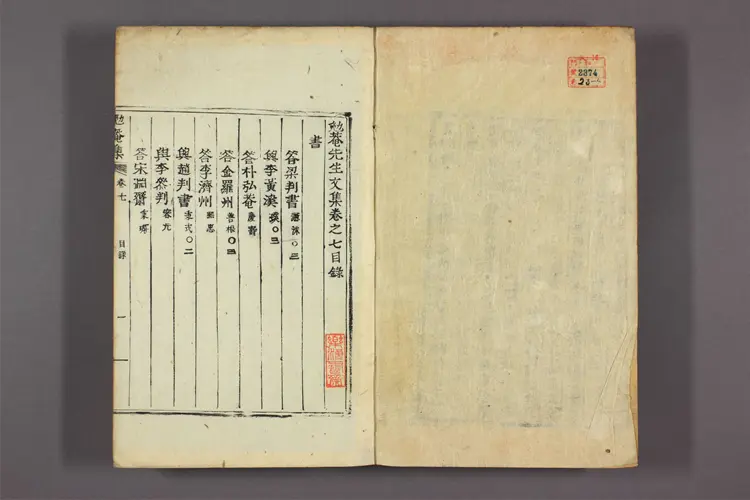 勉菴先生文集卷之七目錄
書
答梁判書 〇三
與李黃溪 〇三
答朴弘菴 慶壽
答金羅州 〇三
答李濟州
與趙判書 〇二
與李參判 容元
答宋淵齋 秉璿
勉菴集 卷七 目錄 一
2374